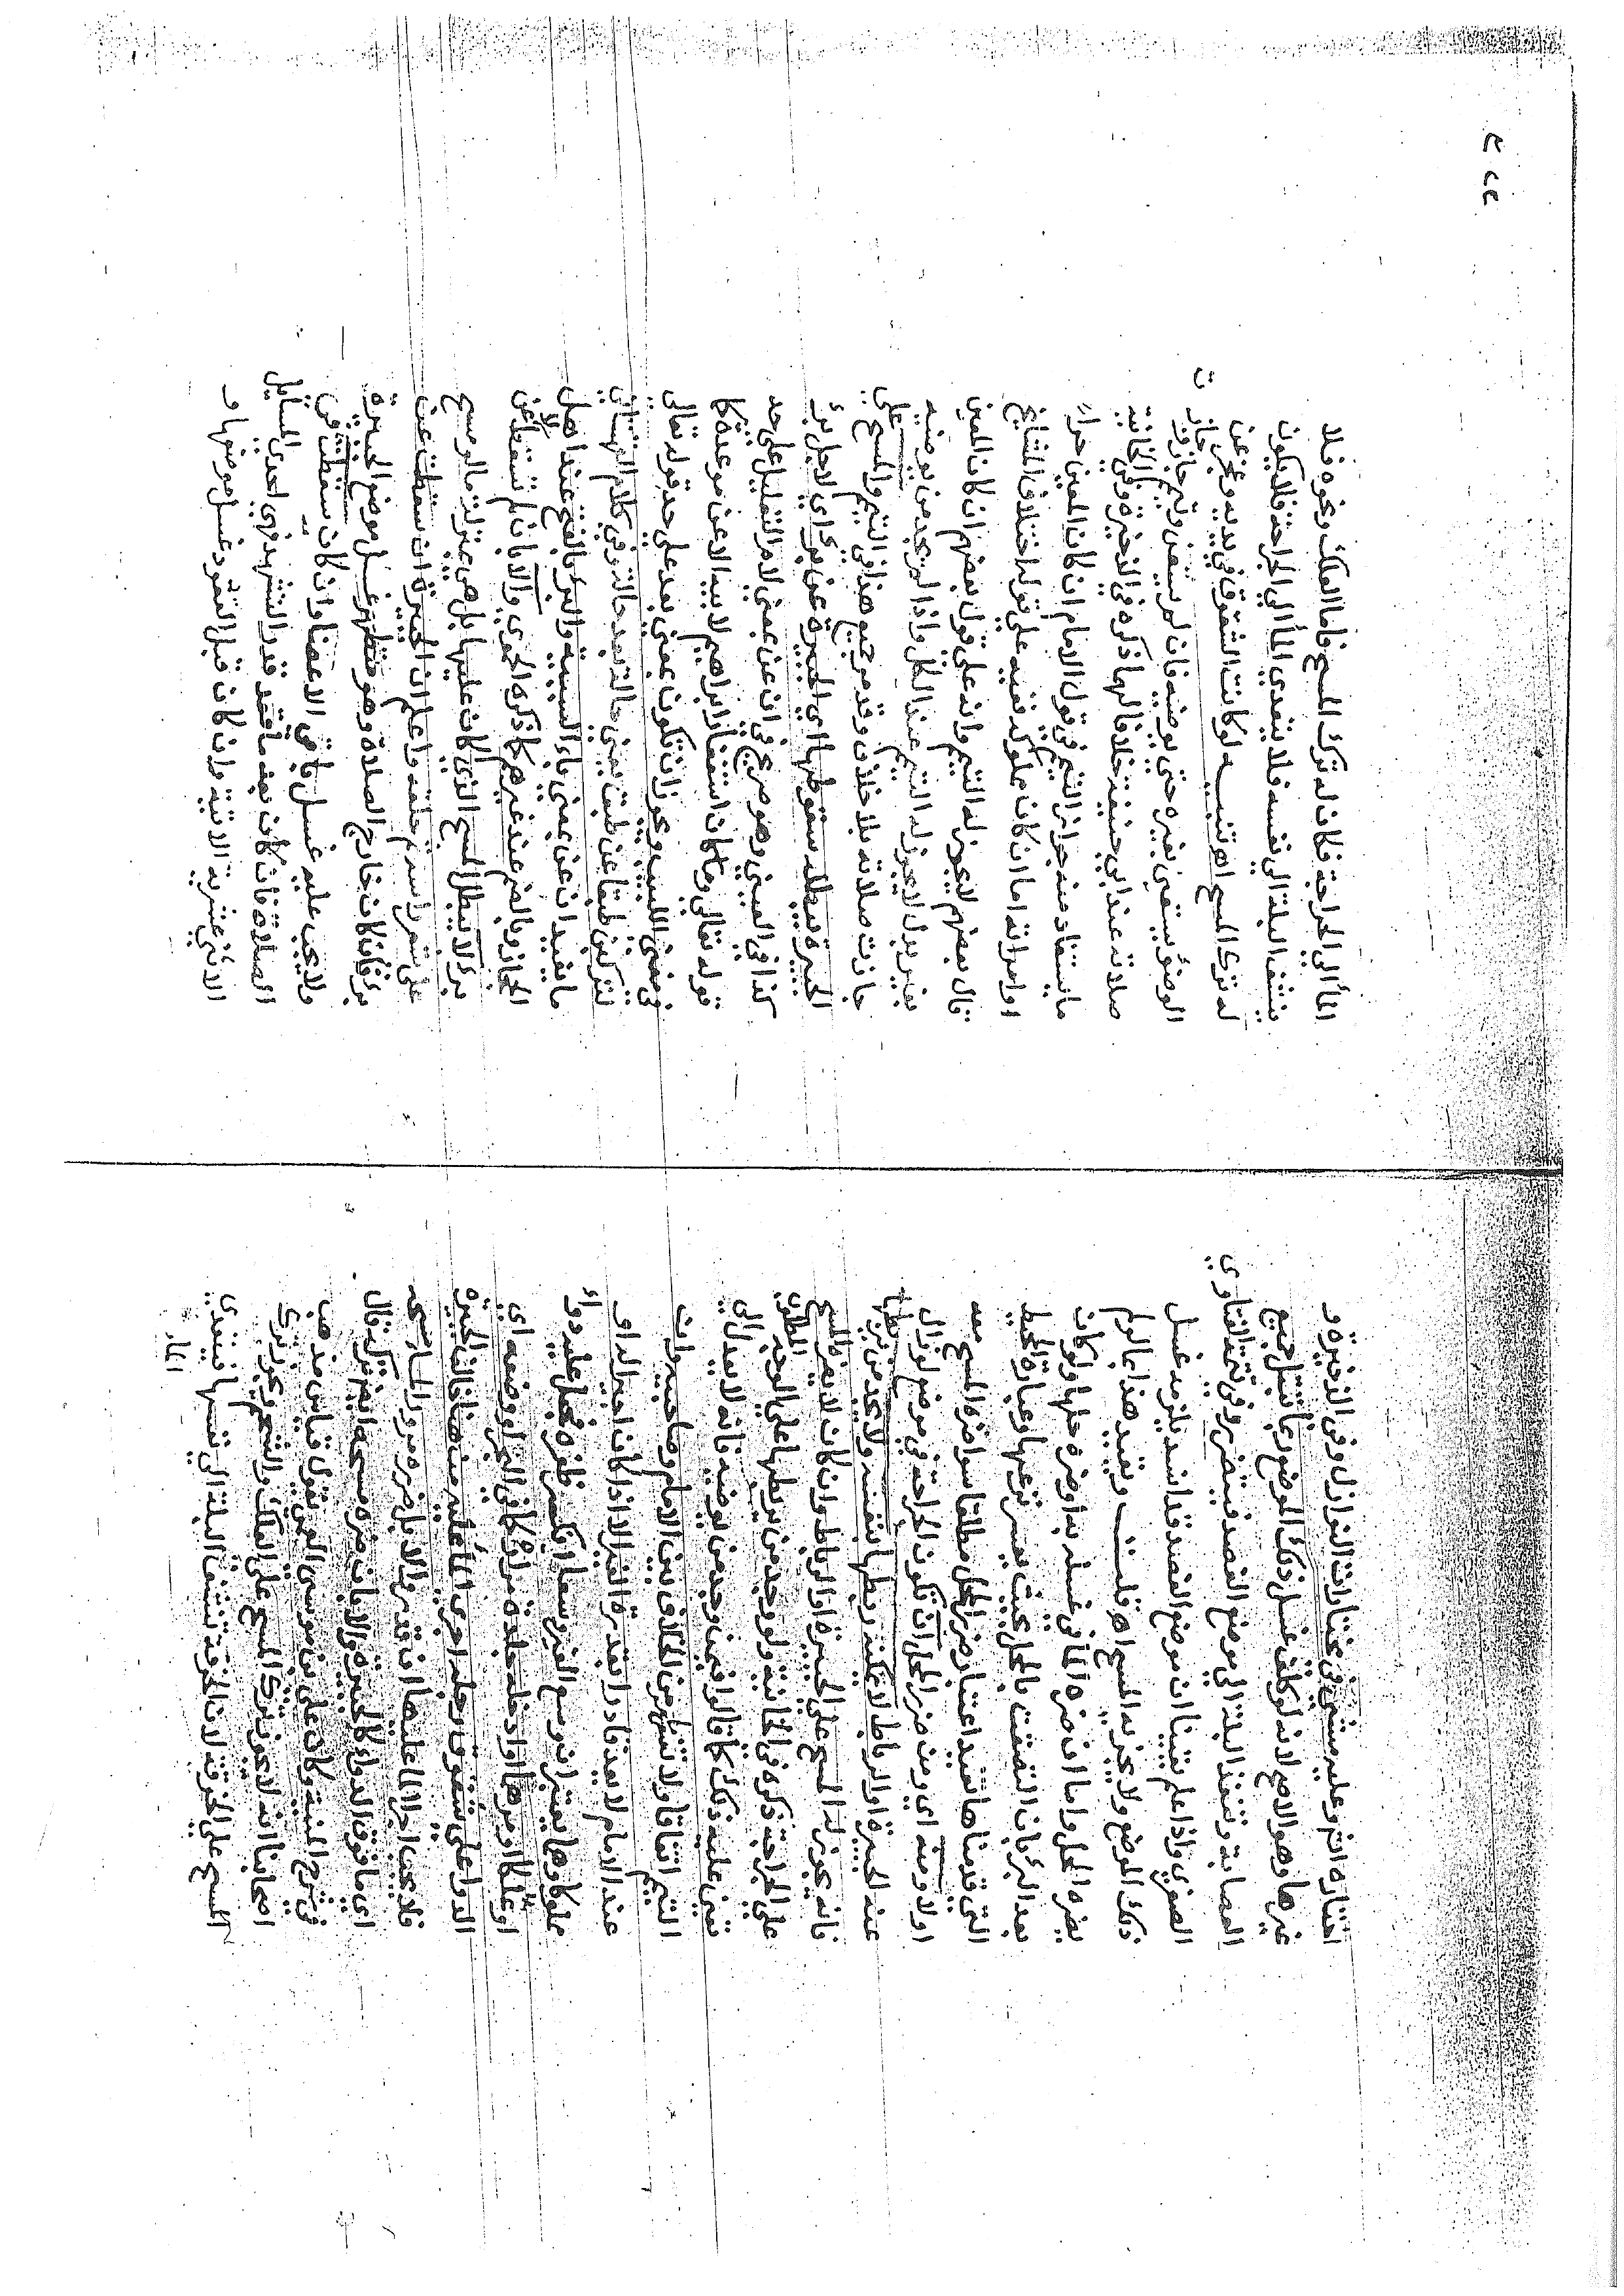 اختاره انتهى وعليه مشى في مختارات النوازل وفي الذخيرة و
غيرها وهو الاصح لانه لو كلف غسل ذلك الموضع ربما تبتل جميع
العصابة وتنفذ البلة الى موضع الفصد فيتضرر وفي تتمة الفتاوى
الصغرى واذا علم يقينا ان موضع الفصد قد انسد يلزمه غسل
ذلك الموضع ولا يجزيه المسح اه قلت ويقيد هذا بما لو لم
يضره الحل واما ان ضره الماء في غسله به او ضره حلها ولو كان
بعد البرء بان التصقت بالمحل بحيث يعسر نزعها وعبارة المحيط
التي قدمناها تفيد اعتبار ضر الحل مطلقا سوا ضره المسح معه
اولا ومنه اي ومن ضر الحل ان تكون الجراحة في موضع لو زال
عنه الجبيرة او الرباط لا يمكنه ربطها بنفسه ولا يجد من يربطها
فانه يجوز له المسح على الجبيرة والرباط وان كان لا يضره المسح
على الجراحة ذكره في الخانية ولو وجد من يربطها على الوجه المطلوب
تعين عليه ذلك كما قالوا فيمن وجد من يوضيه فانه لا يعدل الى
التيمم اتفاقا ولا من الخلاف بين الامام وصاحبيه
عند الامام لا يعد قادرا بقدرة الغير الا اذا كان اجيرا له او
مملوكا وهنا يعتبر ان وسع الغير وسعا انكسر ظفره فجعل عليه دواء
او علكا او مرهما او ادخله جلدة مرارة كما في البحر او وضعه اي
الدوا على شقوق رجله اجرى الماء عليه الجبيرة
فلا يجب اجراء الماء عليها ان قدر والا بان ضره مرور الماء مسحه
اي ما فوق الدواء كالجبيرة والا بان ضره مسحه ايضا تركه قال
في شرح المنية وكان على بن موسى القمي يقول قياس مذهب
اصحابنا انه لا يجوز ترك المسح على العلك والشحم ويجوز ترك
المسح على الخرقة لان الخرقة تنشف البلة الى نفسها فيتعدى
الماء
الماء الى الجراحة فكان له ترك المسح فاما العلك ونحوه فلا
ينشف البلة الى نفسه فلا يتعدى الماء الى الجراحة فلا يكون
له ترك المسح اه تنبيه لو كانت الشقوق في يديه وعجز عن
الوضوء يستعين بغيره حتى يوضيه فان لم يستعن وتيمم جاز وجازت
صلاته عند ابي حنيفة خلافا لهما ذكره في الذخيرة وفي الخانية
ما يستفاد منه جواز التيمم في قول الامام ان كان المعين حرا
او امراته اما ان كان مملوكه ففيه على قوله اختلاف المشايخ
قال بعضهم لا يجوز له التيمم وانه على قول بعضهم ان كان المعين
بغير بدل لا يجوز له التيمم عند الكل واذا لم يجد من يوضيه
جازت صلاته بلا خلاف وقد مر جميع هذا في التيمم والمسح على
الجبيرة يبطله سقوطها اي الجبيرة عن برء اي لاجل برء
كذا في العيني وهو صريح في ان عن بمعنى لام التعليل على حد
قوله تعالى وما كان استغفار ابراهيم لابيه الا عن موعدة كما
في مغني اللبيب ويجوز ان تكون بمعنى بعد على حد قوله تعالى
لتركبن طبقا عن طبق يعني حالة بعد حالة وفي كلام القهستاني
ما يفيد ان عن بمعنى باء السببية والبرء بالفتح عند اهل
الحجاز وبالضم عند غيرهم كما ذكره الحموي والا بان لم تسقط عن
برء لا يبطل المسح الذي كان عليها بل هي بمنزلة ما لو مسح
على شعر راسه ثم حلقه واعلم ان الجبيرة ان سقطت عن
برء فان كان خارج الصلاة وهو متطهر غسل موضع الجبيرة
ولا يجب عليه غسل باقي الاعضاء وان كان سقطت في
الصلاة فان كان بعد ما قعد قدر التشهد فهي احدى المسائل
الاثنى عشرية الاتية وان كان قبل القعود غسل موضعها و